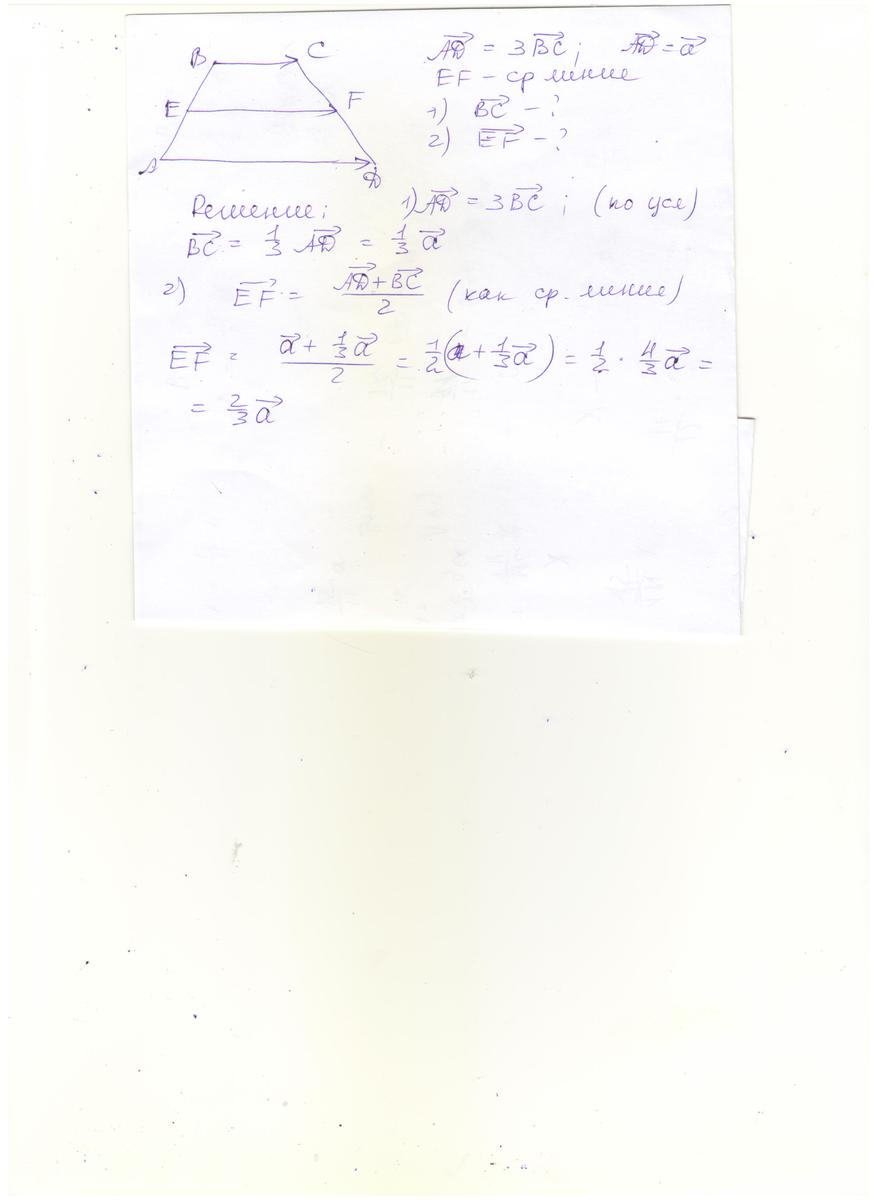 B C
E F
A D
AD⃗ = 3BC⃗; AD⃗ = a⃗
EF – ср линие
1) BC⃗ – ?
2) EF⃗ – ?
Решение; 1) AD⃗ = 3BC⃗; (по усл)
BC⃗ = 1/3 AD⃗ = 1/3 a⃗
2) EF⃗ = (AD⃗ + BC⃗)/2 (как ср. линие)
EF⃗ = (a⃗ + 1/3 a⃗)/2 = 1/2 (a + 1/3 a⃗) = 1/2 · 4/3 a⃗ =
= 2/3 a⃗